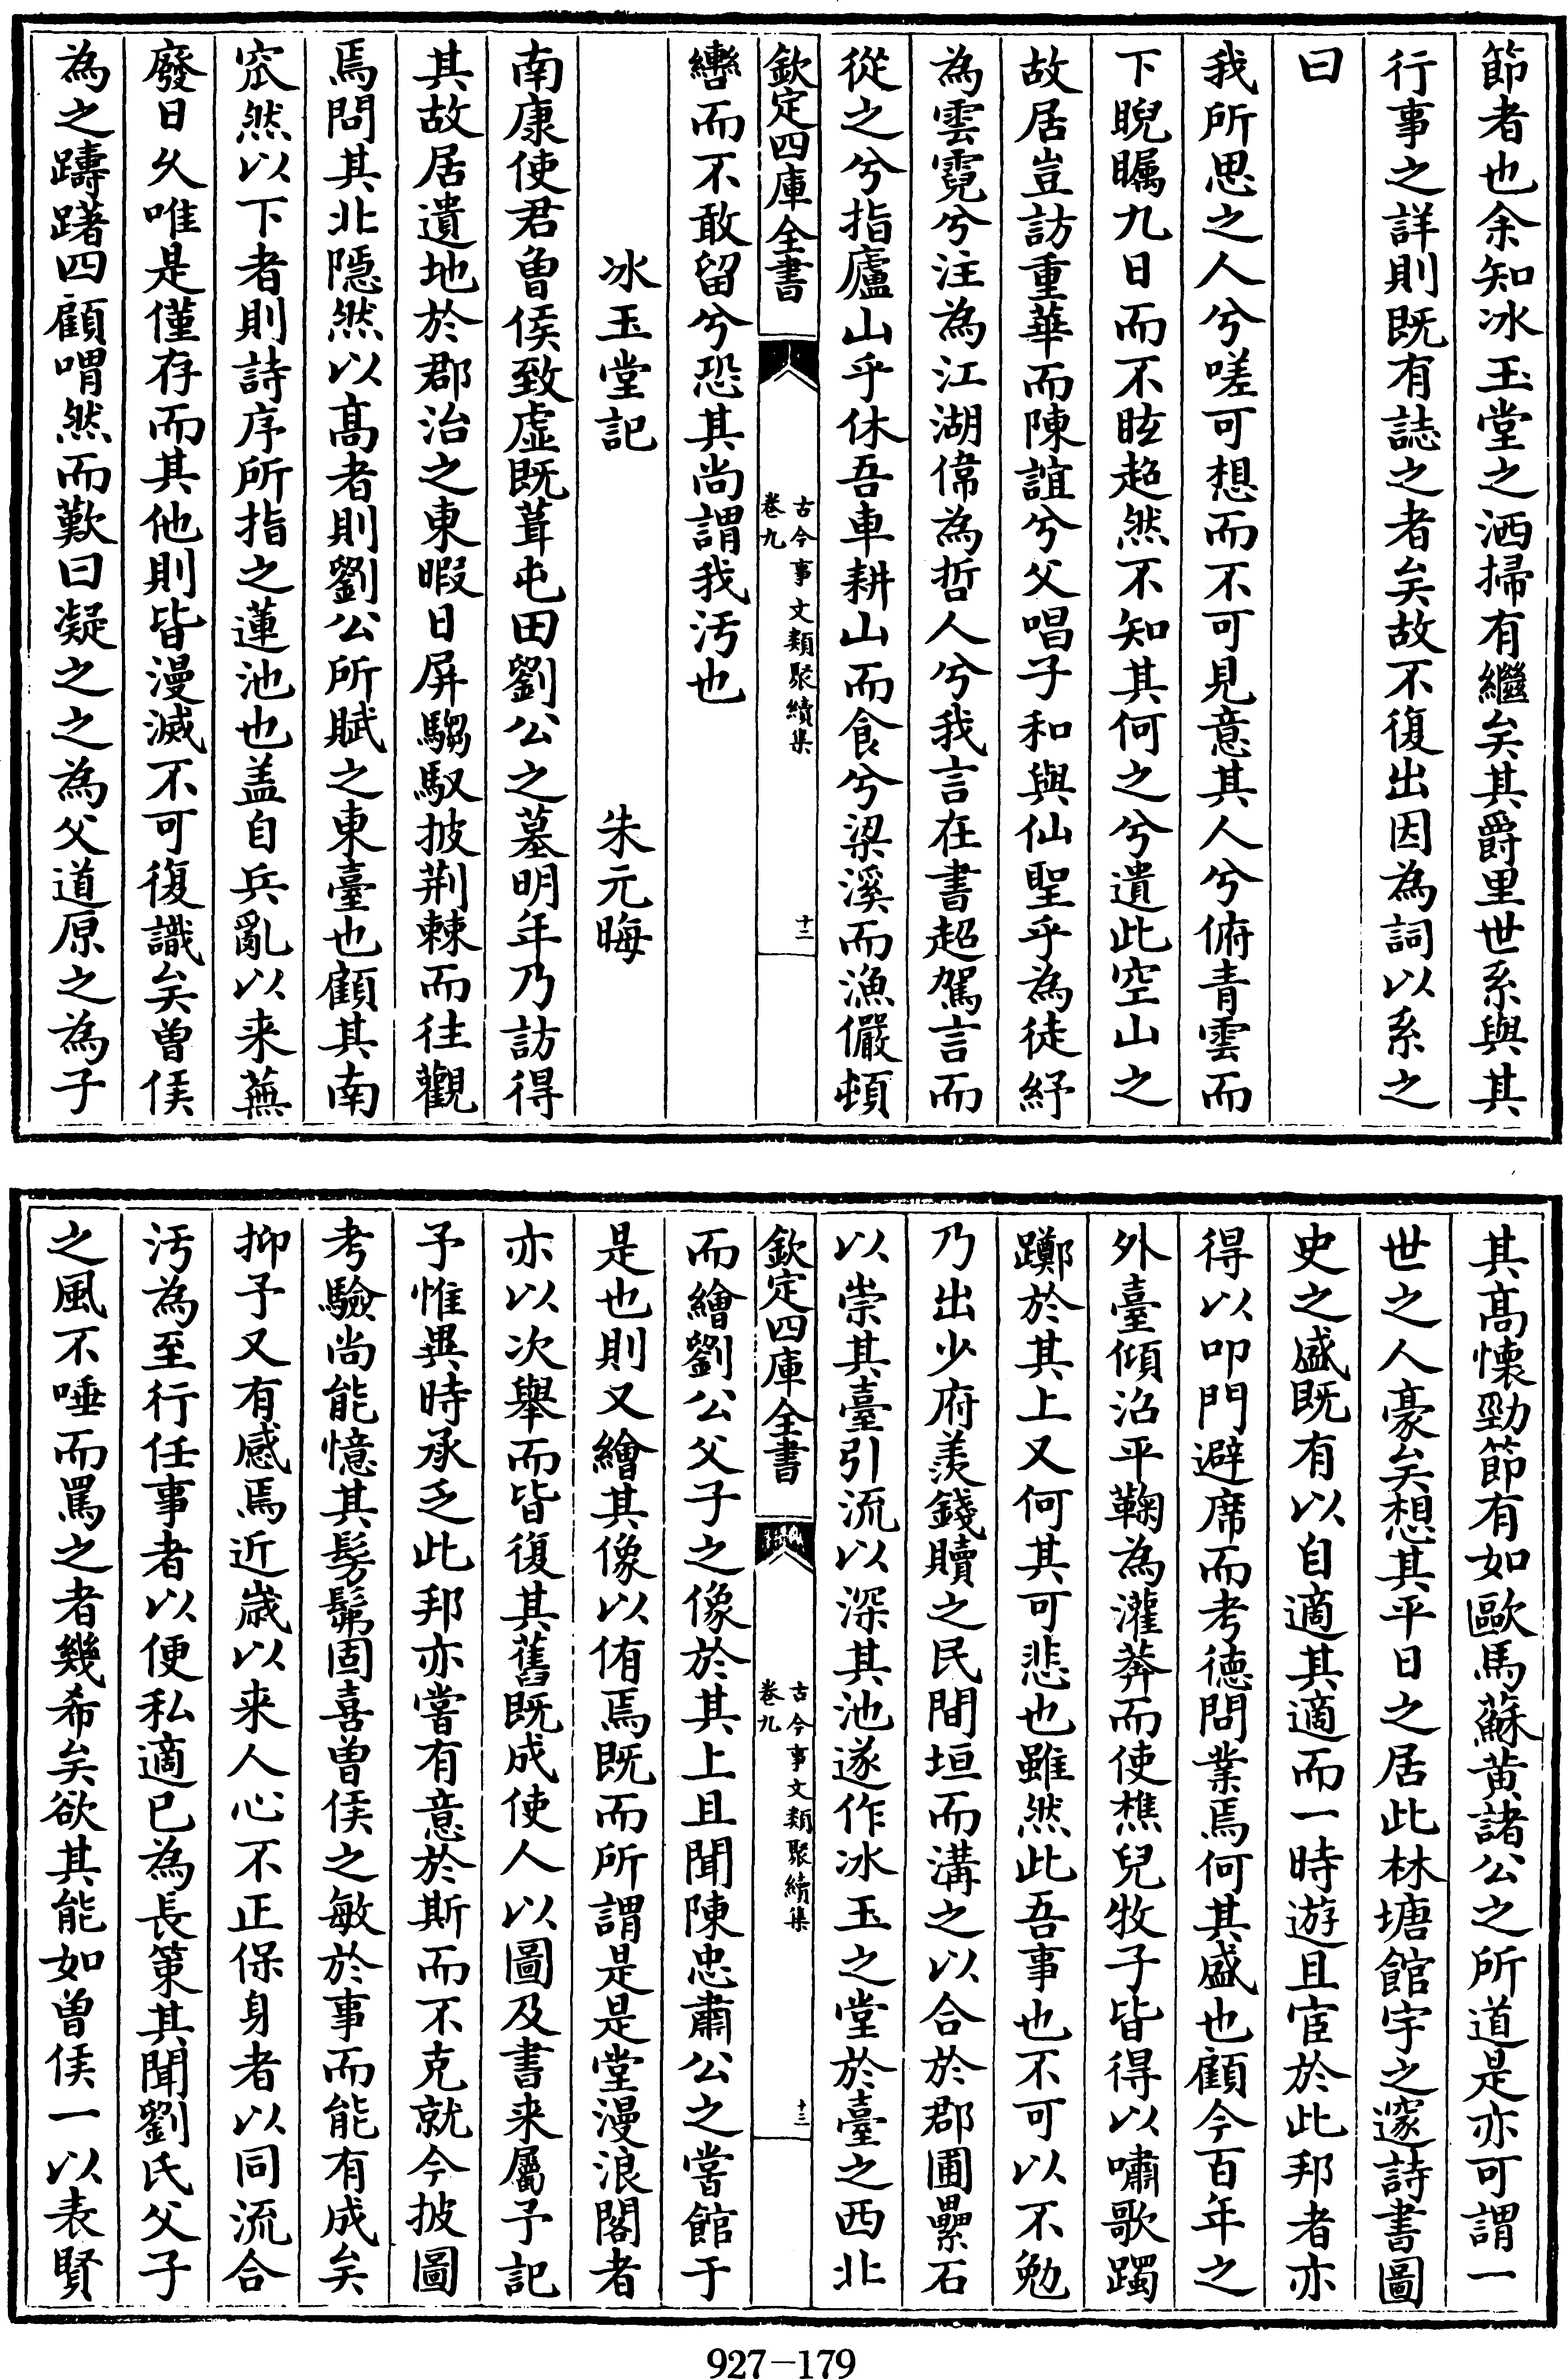 節者也余知冰玉堂之洒掃有繼矣其爵里世系與其
行事之詳則既有誌之者矣故不復出因為詞以系之
曰
我所思之人兮嗟可想而不可見意其人兮俯青雲而
下睨矚九日而不眩超然不知其何之兮遺此空山之
故居豈訪重華而陳誼兮父唱子和與仙聖乎為徒紓
為雲霓兮注為江湖偉為哲人兮我言在書超駕言而
從之兮指廬山乎休吾車耕山而食兮梁溪而漁儼頓
欽定四庫全書
古今事文類聚續集
卷九
十二
轡而不敢留兮恐其尚謂我汚也
冰玉堂記 朱元晦
南康使君曾侯致虛既葺屯田劉公之墓明年乃訪得
其故居遺地於郡治之東暇日屏騶馭披荆棘而往觀
焉問其北隠然以髙者則劉公所賦之東臺也顧其南
窊然以下者則詩序所指之蓮池也盖自兵亂以来蕪
廢日久唯是僅存而其他則皆漫滅不可復識矣曾侯
為之躊躇四顧喟然而歎曰凝之之為父道原之為子
其髙懐勁節有如歐馬蘇黄諸公之所道是亦可謂一
世之人豪矣想其平日之居此林塘館宇之邃詩書圖
史之盛既有以自適其適而一時遊且宦於此邦者亦
得以叩門避席而考徳問業焉何其盛也顧今百年之
外臺傾沼平鞠為灌莽而使樵兒牧子皆得以嘯歌躅
躑於其上又何其可悲也雖然此吾事也不可以不勉
乃出少府羨錢贖之民間垣而溝之以合於郡圃壘石
以崇其臺引流以深其池遂作冰玉之堂於臺之西北
欽定四庫全書
古今事文類聚續集
卷九
十三
而繪劉公父子之像於其上且聞陳忠肅公之嘗館于
是也則又繪其像以侑焉既而所謂是是堂漫浪閣者
亦以次舉而皆復其舊既成使人以圖及書来屬予記
予惟異時承乏此邦亦嘗有意於斯而不克就今披圖
考驗尚能憶其髣髴固喜曾侯之敏於事而能有成矣
抑予又有感焉近嵗以来人心不正保身者以同流合
汚為至行任事者以便私適已為長策其聞劉氏父子
之風不唾而罵之者幾希矣欲其能如曾侯一以表賢
927-179